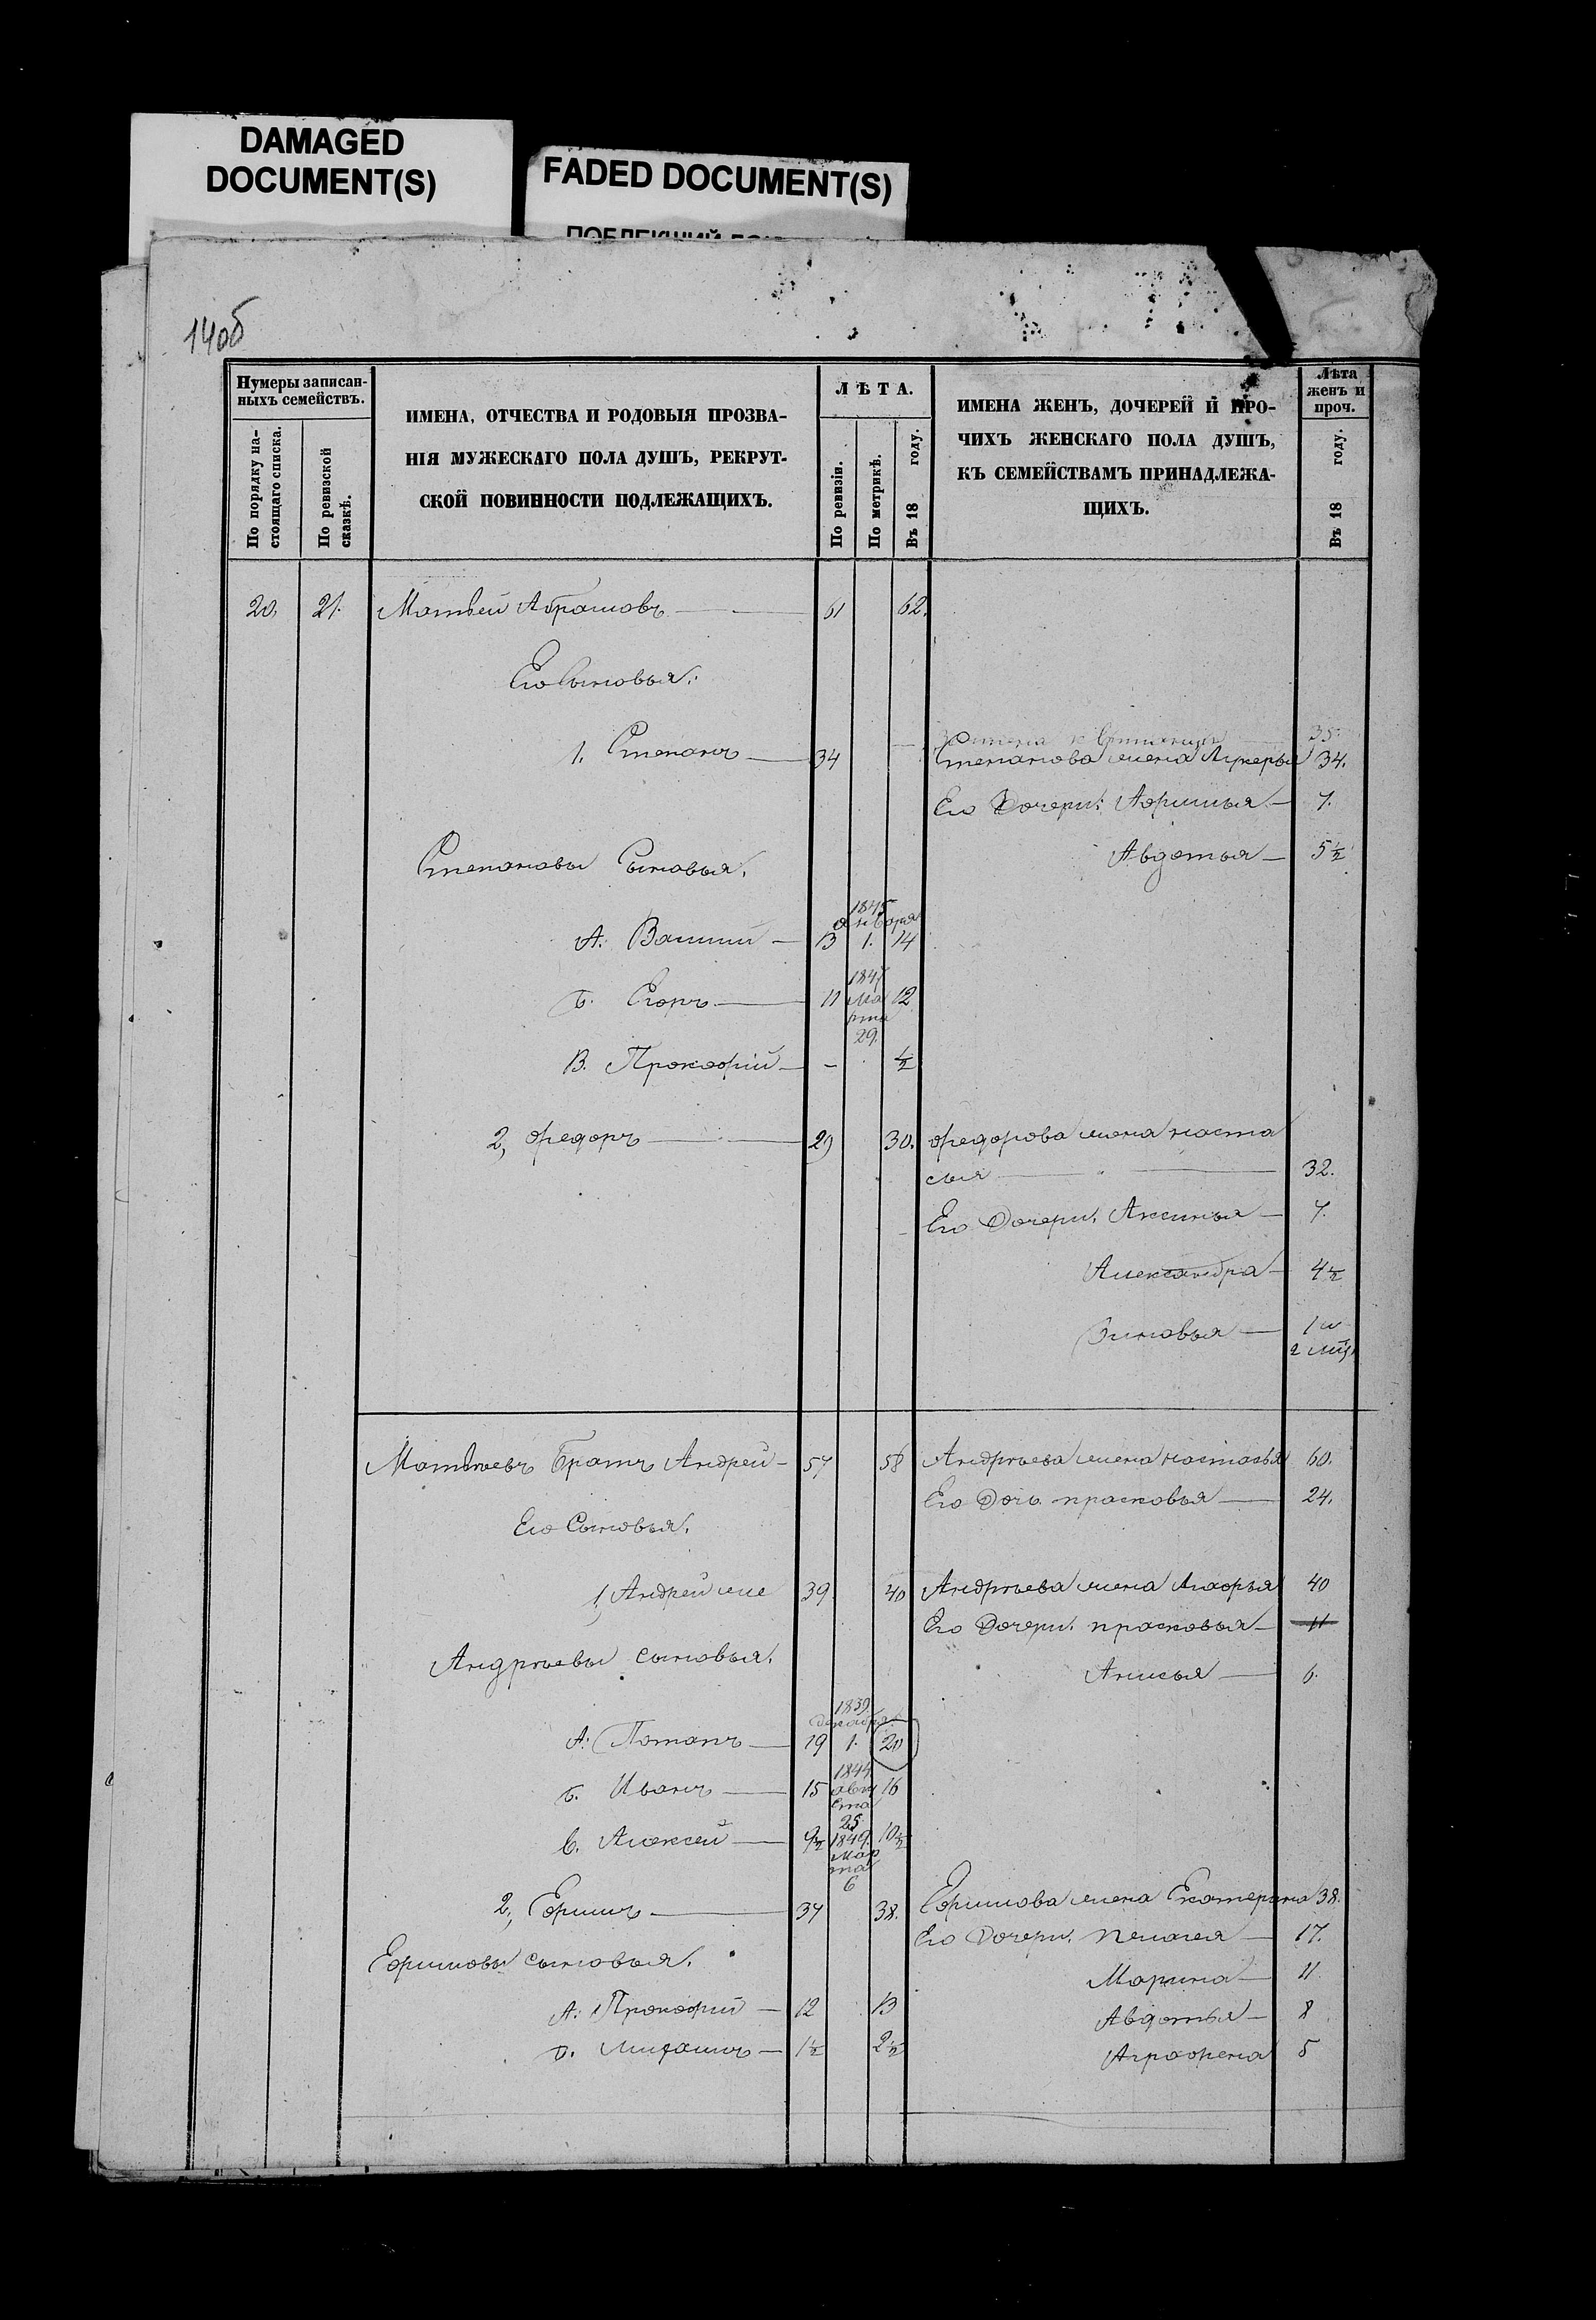 DAMAGED
DOCUMENT(S)
FADED DOCUMENT(S)
140б
Нумеры записан-
ныхъ семействъ.
По порядку на-
стоящаго списка.
По ревизской
сказкѣ.
ИМЕНА, ОТЧЕСТВА И РОДОВЫЯ ПРОЗВА-
НІЯ МУЖЕСКАГО ПОЛА ДУШЪ, РЕКРУТ-
СКОЙ ПОВИННОСТИ ПОДЛЕЖАЩИХЪ.
ЛѢТА.
По ревизіи.
По метрикѣ.
Въ 18 году.
ИМЕНА ЖЕНЪ, ДОЧЕРЕЙ И ПРО-
ЧИХЪ ЖЕНСКАГО ПОЛА ДУШЪ,
КЪ СЕМЕЙСТВАМЪ ПРИНАДЛЕЖА-
ЩИХЪ.
Лѣта
женъ и
проч.
Въ 18 году.
20. 21. Матвей Абрамовъ 61 62.
Его Сыновья:
35.
1. Степанъ 34 Степанова жена Лукерья 34.
Его Дочери: Афимья 7.
Степановы Сыновья. Авдотья 5½
1845
января
А. Василий 13 1. 14
1847
б. Егоръ 11 Ма 12
рта
29.
В. Прокофий - ½
2, Федоръ 29 30. Федорова жена наста
сья 32.
Его Дочери. Аксинья 7.
Александра 4½
Зиновья 1 и
2 мѣс.
Матвѣевъ братъ Андрей 57 58 Андрѣева жена настасья 60.
Его Дочь прасковья 24.
Его Сыновья.
1, Андрей же 39. 40 Андрѣева жена 40
Его Дочери. прасковья 11
Андрѣевы сыновья. Анисья 6.
1839
декабря
А. Потапъ 19 1. 20
1844
б. Иванъ 15 авгу 16
ста
25.
в. Алексей 9½ 1849. 10½
Мар
та
6
2, Ефимъ 37 38. Ефимова жена Екатерина 38.
Его Дочери. пелагея 17.
Ефимовы сыновья. Марина 11.
А. Прокофий 12 13 Авдотья 8
б. 1½ 2½ Аграфена 5